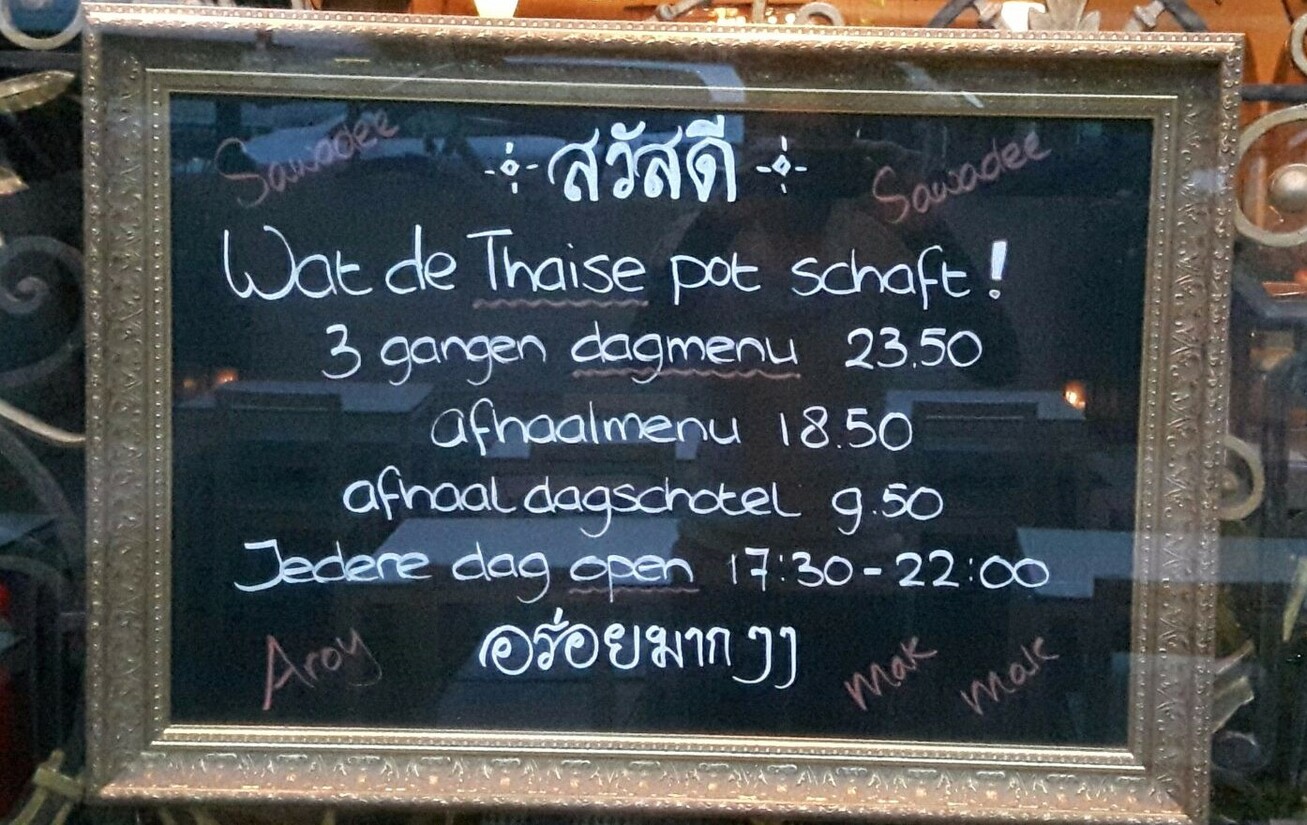 Sawadee สวัสดี Sawadee
Wat de Thaise pot schaft!
3 gangen dagmenu 23.50
afhaalmenu 18.50
afhaal dagschotel 9.50
Iedere dag open 17:30-22:00
Aroy อร่อยมากๆๆ mak mak